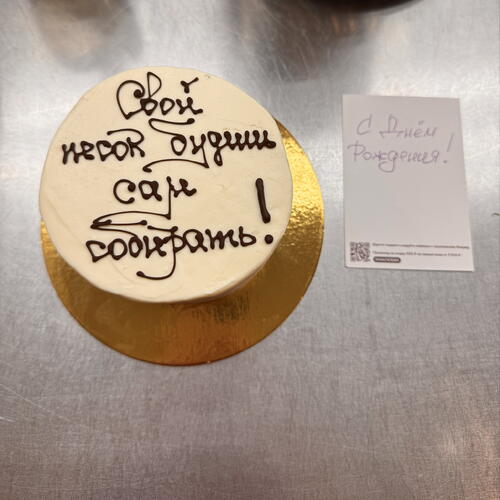 Свой
песок будеш
сам
собирать!
С Днём
Рождения!